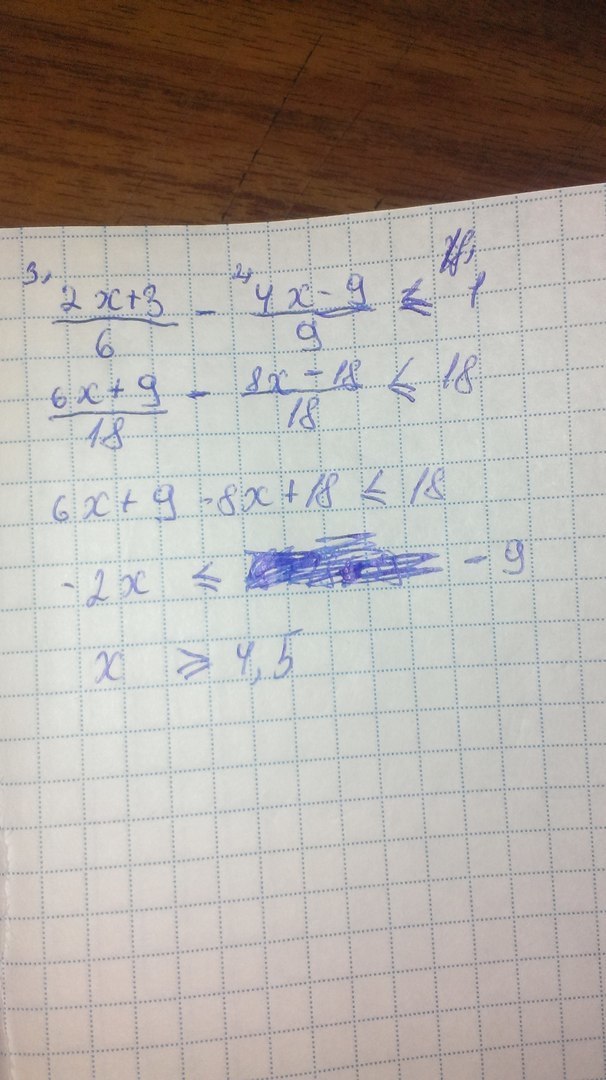 3, (2x+3)/6 - 2, (4x-9)/9 ≤ 1
(6x+9)/18 - (8x-18)/18 ≤ 18
6x+9-8x+18 ≤ 18
-2x ≤ -9
x ≥ 4,5